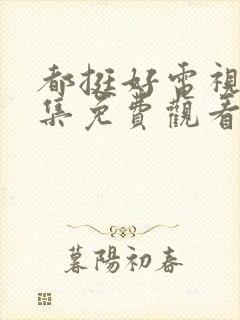 都挺好電視
集免費觀看
暮陽初春